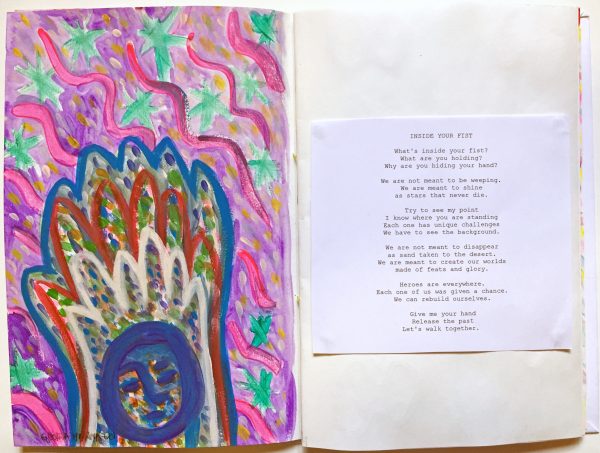 INSIDE YOUR FIST
What's inside your fist?
What are you holding?
Why are you hiding your hand?
We are not meant to be weeping.
We are meant to shine
as stars that never die.
Try to see my point
I know where you are standing
Each one has unique challenges
We have to see the background.
We are not meant to disappear
as sand taken to the desert.
We are meant to create our worlds
made of feats and glory.
Heroes are everywhere.
Each one of us was given a chance.
We can rebuild ourselves.
Give me your hand
Release the past
Let's walk together.